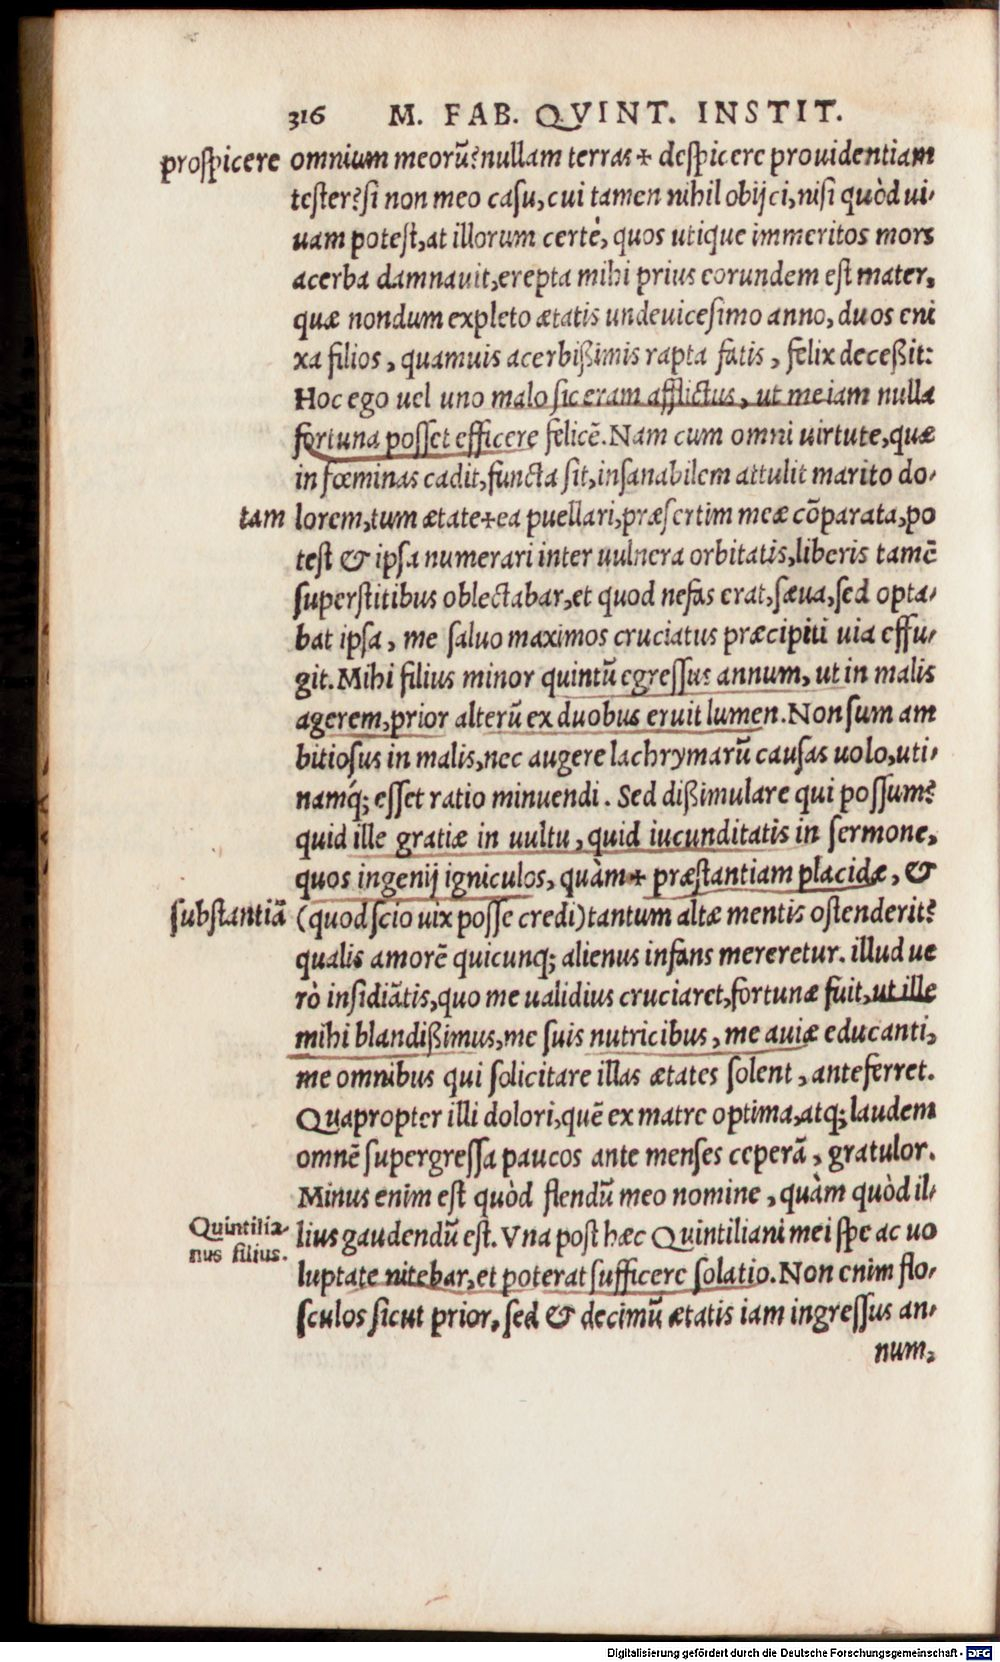 316 M. FAB. QVINT. INSTIT.
prospicere omnium meorū? nullam terras + despicere prouidentiam
tester? si non meo casu, cui tamen nihil obijci, nisi quòd ui-
uam potest, at illorum certè, quos utique immeritos mors
acerba damnauit, erepta mihi prius eorundem est mater,
quæ nondum expleto ætatis undeuicesimo anno, duos eni
xa filios, quamuis acerbißimis rapta fatis, felix deceßit:
Hoc ego uel uno malo sic eram afflictus, ut me iam nulla
fortuna posset efficere felicē. Nam cum omni uirtute, quæ
in fœminas cadit, functa sit, insanabilem attulit marito do-
tam lorem, tum ætate + ea puellari, præsertim meæ cōparata, po
test & ipsa numerari inter uulnera orbitatis, liberis tamē
superstitibus oblectabar, et quod nefas erat, sæua, sed opta-
bat ipsa, me saluo maximos cruciatus præcipiti uia effu-
git. Mihi filius minor quintū egressus annum, ut in malis
agerem, prior alterū ex duobus eruit lumen. Non sum am
bitiosus in malis, nec augere lachrymarū causas uolo, uti-
namq́; esset ratio minuendi. Sed dißimulare qui possum?
quid ille gratiæ in uultu, quid iucunditatis in sermone,
quos ingenij igniculos, quàm + præstantiam placidæ, &
substantiā (quod scio uix posse credi) tantum altæ mentis ostenderit?
qualis amorē quicunq; alienus infans mereretur. illud ue
rò insidiātis, quo me ualidius cruciaret, fortunæ fuit, ut ille
mihi blandißimus, me suis nutricibus, me auiæ educanti,
me omnibus qui solicitare illas ætates solent, anteferret.
Quapropter illi dolori, quē ex matre optima, atq; laudem
omnē supergressa paucos ante menses ceperā, gratulor.
Minus enim est quòd flendū meo nomine, quàm quòd il-
Quintilia-
nus filius.
lius gaudendū est. Vna post hæc Quintiliani mei spe ac uo
luptate nitebar, et poterat sufficere solatio. Non enim flo-
sculos sicut prior, sed & decimū ætatis iam ingressus an-
num,
Digitalisierung gefördert durch die Deutsche Forschungsgemeinschaft - DFG